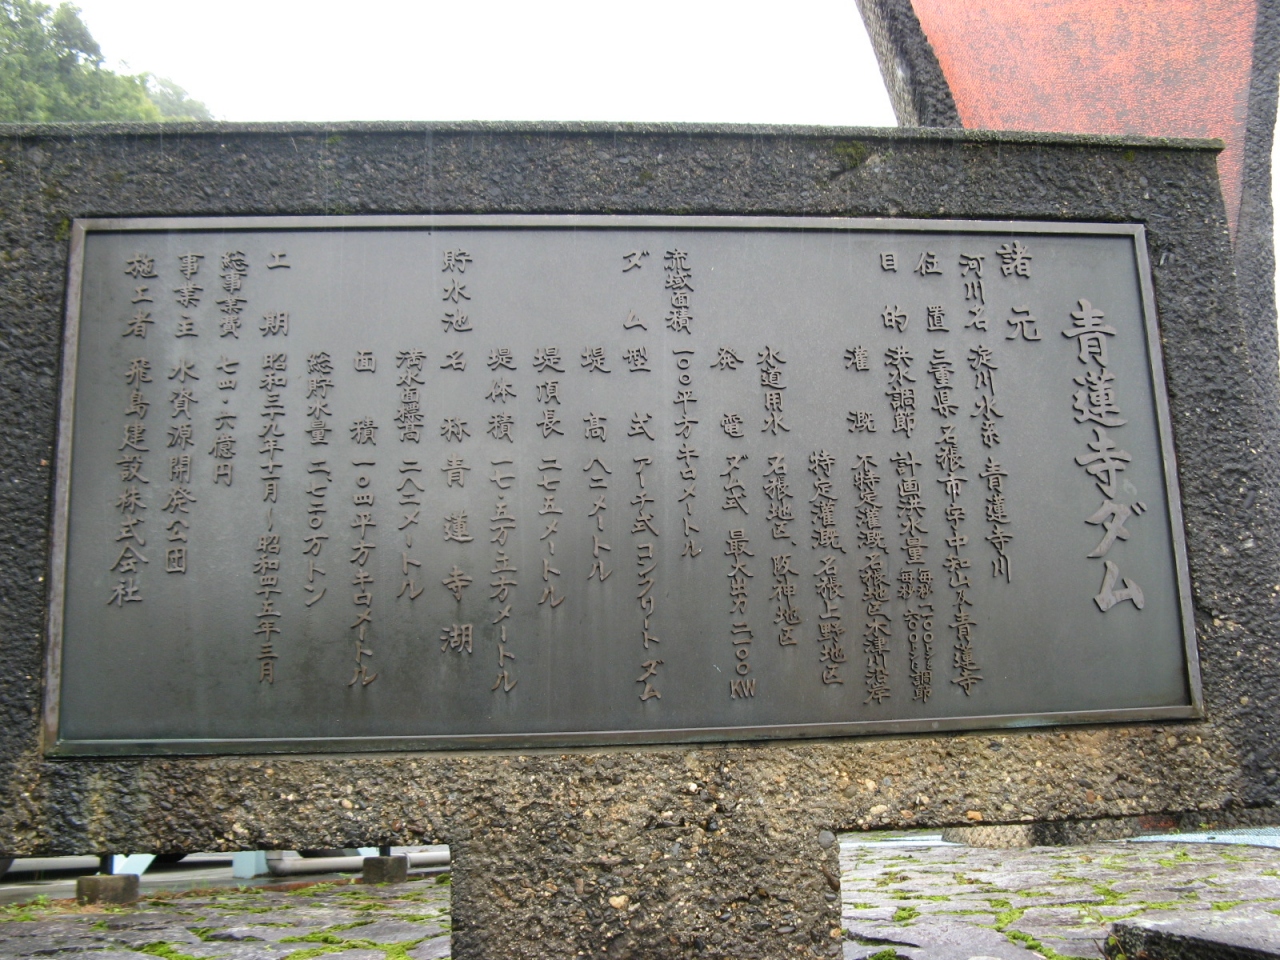 青蓮寺ダム
諸元
河川名 淀川水系 青蓮寺川
位置 三重県名張市字中知山、字青蓮寺
目的 洪水調節 計画洪水量
灌漑 不特定灌漑 名張地区、木津川沿岸
特定灌漑 名張上野地区
水道用水 名張地区、阪神地区
発電 ダム式 最大出力 二〇〇〇KW
流域面積 一〇〇平方キロメートル
ダム 型式 アーチ式コンクリートダム
堤高 八二メートル
堤頂長 二七五メートル
堤体積 一七・五万立方メートル
貯水池 名称 青蓮寺湖
満水面標高 二八二メートル
面積 一・〇四平方キロメートル
総貯水量 二、七二〇万トン
工期 昭和三九年十一月〜昭和四十五年三月
総事業費 七四・六億円
事業主 水資源開発公団
施工者 飛島建設株式会社